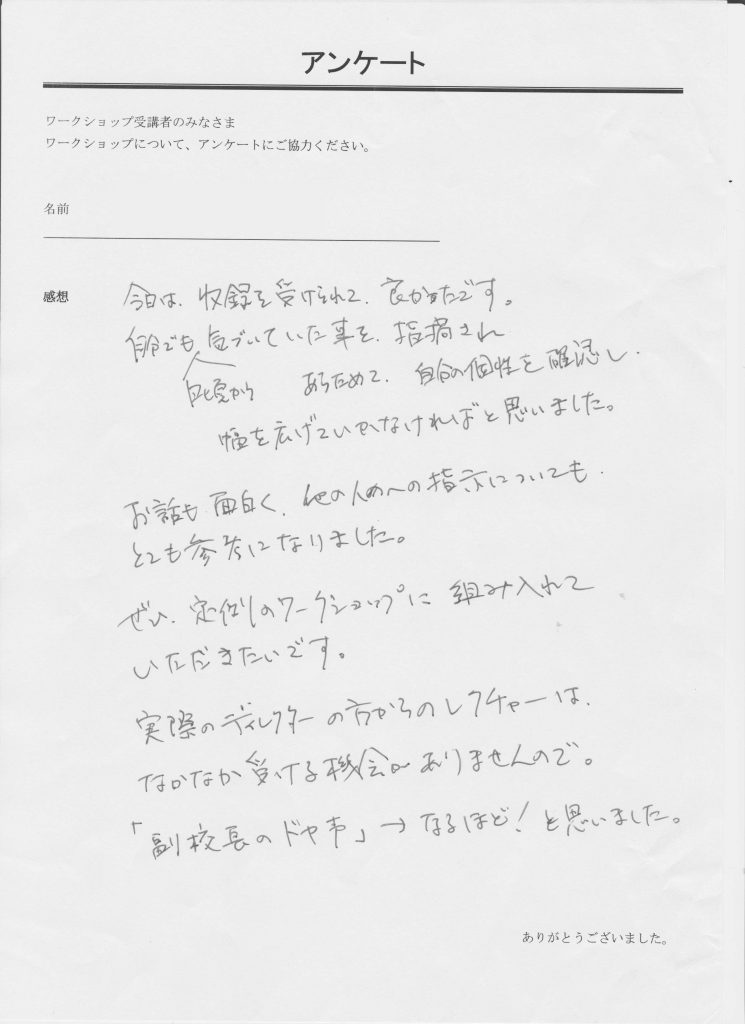 アンケート
ワークショップ受講者のみなさま
ワークショップについて、アンケートにご協力ください。
名前
感想
今日は、収録を受けられて、良かったです。
自分でも気づいていた事を、指摘され
日頃から
あらためて、自分の個性を確認し、
幅を広げていかなければと思いました。
お話も面白く、他の人めへの指示についても、
とても参考になりました。
ぜひ、定例のワークショップに組み入れて
いただきたいです。
実際のディレクターの方からのレクチャーは、
なかなか受ける機会がありませんので。
「副校長のドヤ声」→なるほど!と思いました。
ありがとうございました。